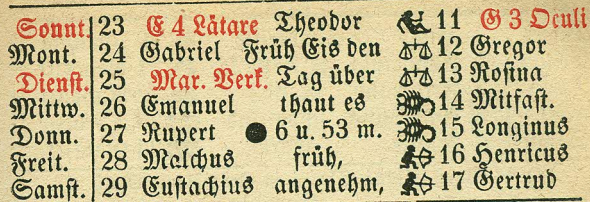 Sonnt. 23 E 4 Lätare Theodor 11 G 3 Oculi
Mont. 24 Gabriel Früh Eis den 12 Gregor
Dienst. 25 Mar. Verk. Tag über 13 Rosina
Mittw. 26 Emanuel thaut es 14 Mitfast.
Donn. 27 Rupert ● 6 u. 53 m. 15 Longinus
Freit. 28 Malchus früh, 16 Henricus
Samst. 29 Eustachius angenehm, 17 Gertrud